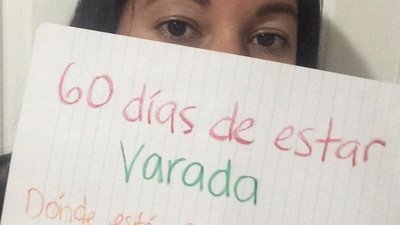 60 días de estar
Varada
Dónde